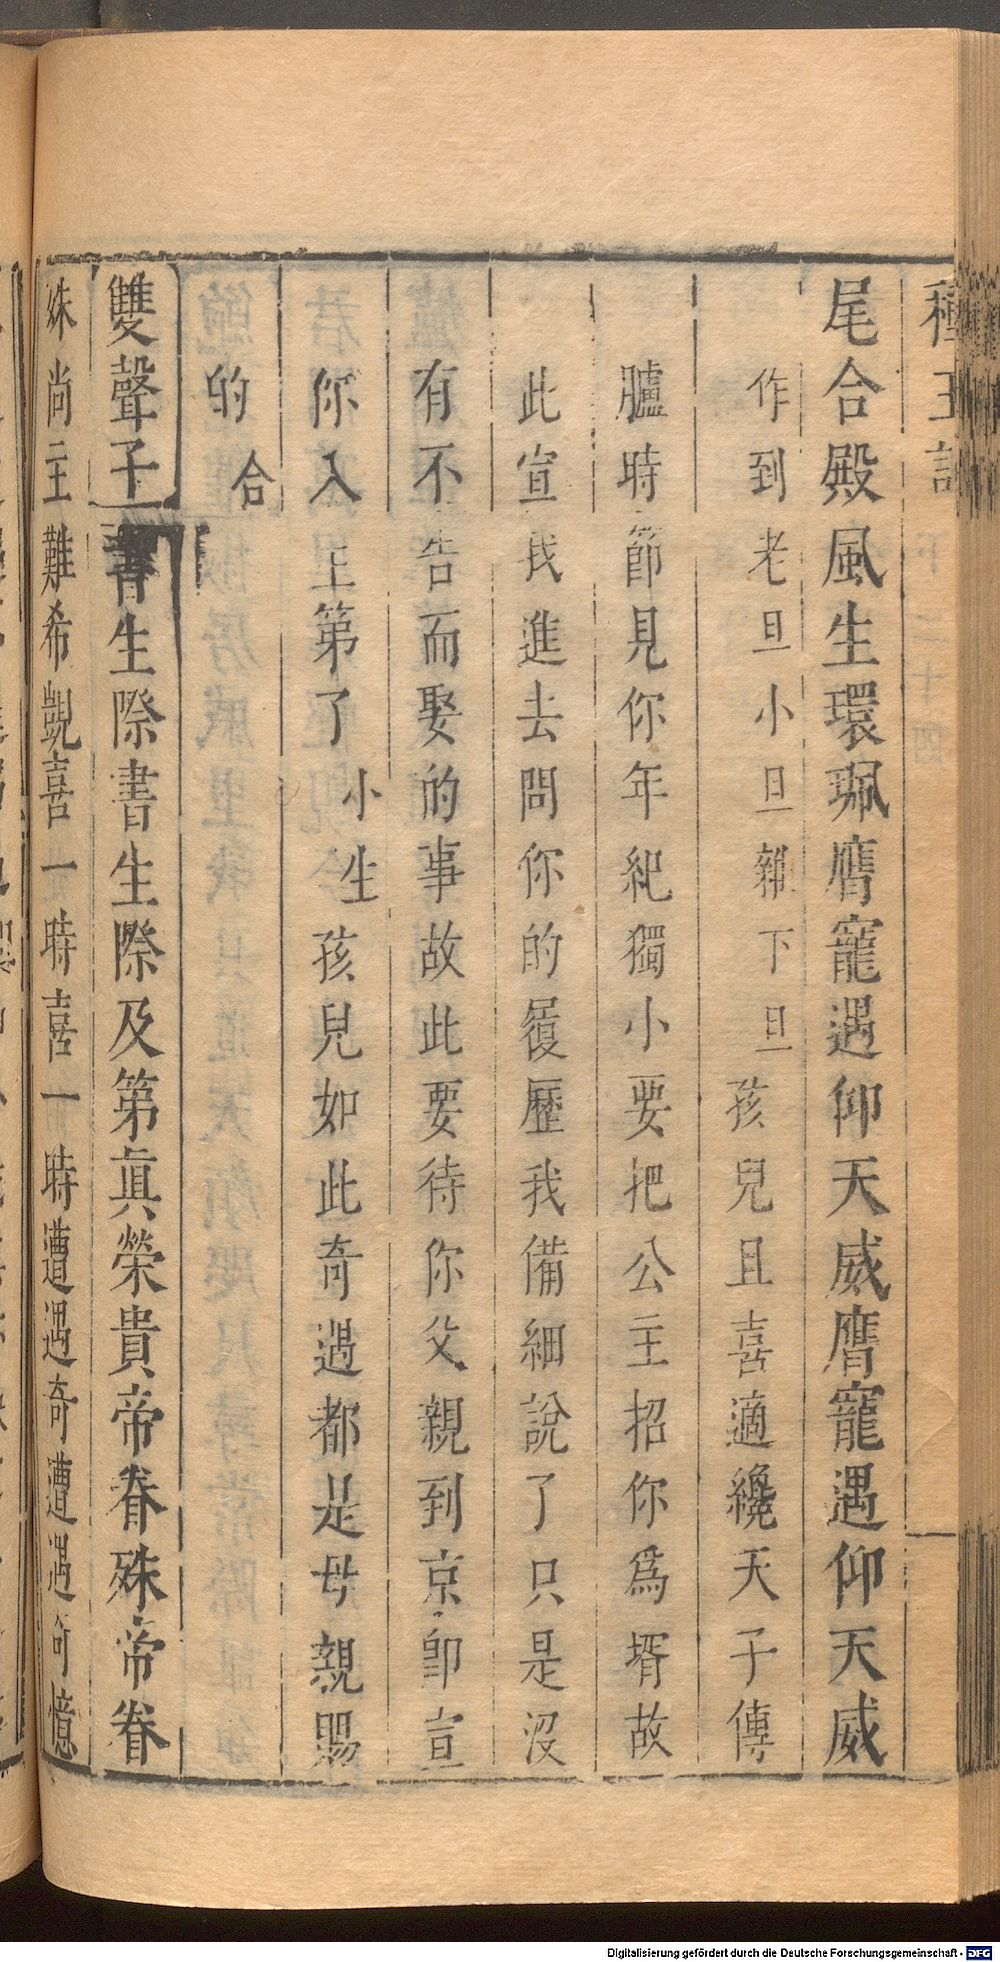 種玉記
尾合殿風生環珮膺寵遇仰天威膺寵遇仰天威
作到老旦小旦雜下旦孩兒且喜適纔天子傳
臚時節見你年紀獨小要把公主招你為壻故
此宣我進去問你的履歷我備細說了只是沒
有不告而娶的事故此要待你父親到京卽宣
你入主第了小生孩兒如此奇遇都是母親賜
的合
雙聲子書生際書生際及第眞榮貴帝眷殊帝眷
殊尚主難希覬喜一時喜一時遭遇奇遭遇奇憶
Digitalisierung gefördert durch die Deutsche Forschungsgemeinschaft - DFG